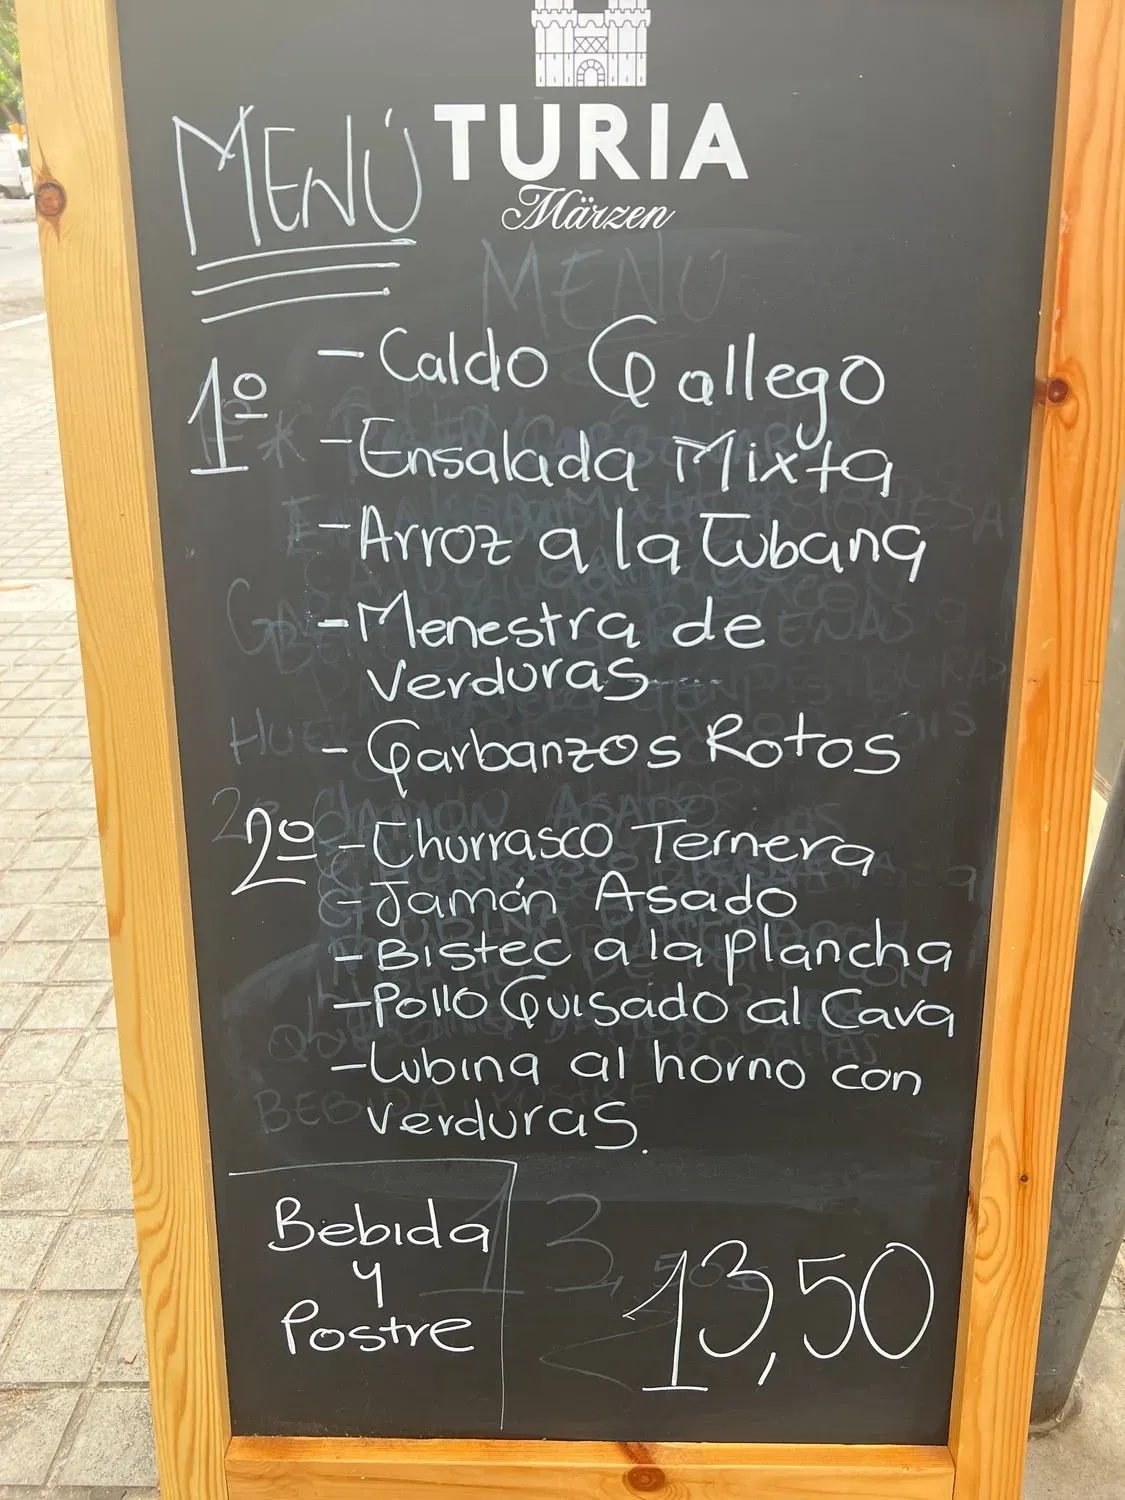 TURIA
Märzen
MENÚ
MENÚ
1º - Caldo Gallego
- Ensalada Mixta
- Arroz a la Cubana
- Menestra de
verduras
- Garbanzos Rotos
2º - Churrasco Ternera
- Jamón Asado
- Bistec a la plancha
- Pollo Guisado al Cava
- Lubina al horno con
verduras.
Bebida
y
Postre
13,50